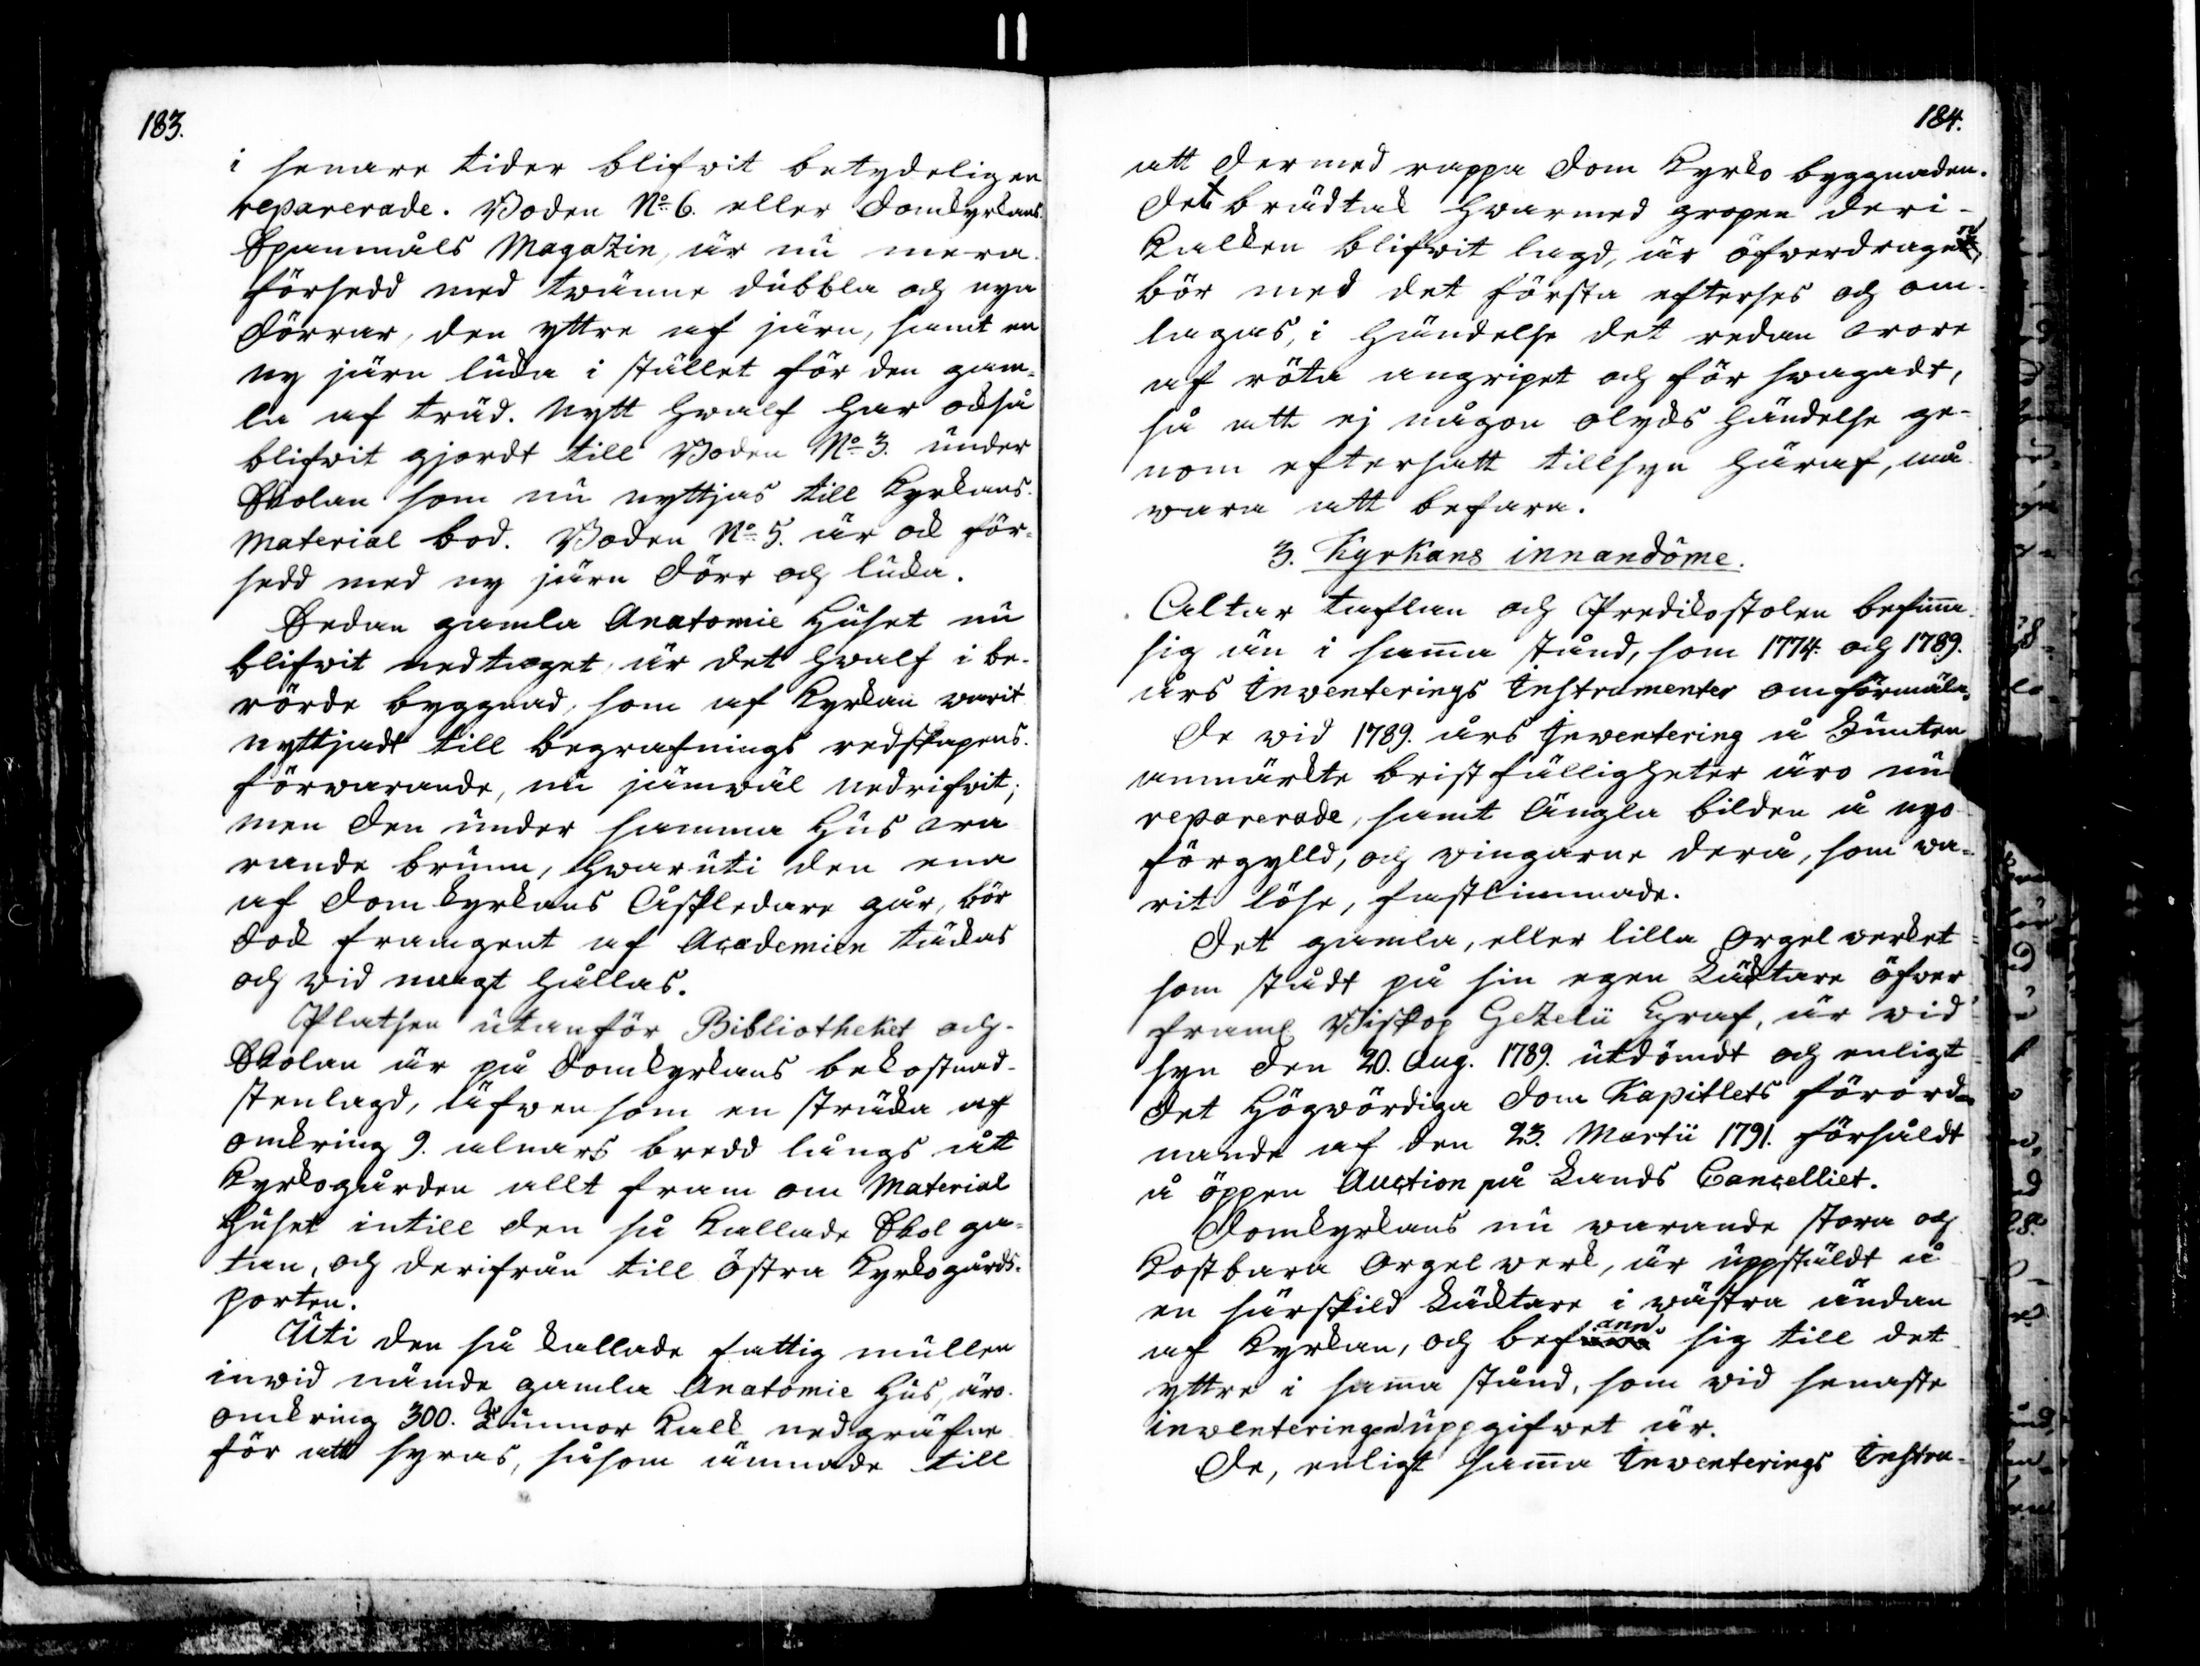 183.
i senare tider blifvit betydeligen
reparerade. Boden No 6. eller Domkyrkans
Spanmåls Magazin, är nu mera
försedd med twänne dubbla och nya
Dörrar, den yttre af järn, samt en
ny järn lucka i stället för den gam-
la af träd. Nytt hwalf har också
blifvit gjordt till Boden No 3. under
Skolan som nu nyttjas till Kyrkans
Material bod. Boden No 5. är ock för-
sedd med ny järn Dörr och lucka.
Sedan gamla Anatomie Huset nu
blifvit nedtaget är det hwalf i be-
rörde byggnad, som af Kyrkan warit
nyttjadt till begrafnings redskapens
förwarande, nu jämwäl nedrifvit;
men den under samma Hus wa
rande brunn, hwaruti den ena
af Domkyrkans Åskledare går, bör
dock framgent af Academien täckas
och vid magt hållas.
Platsen utanför Bibliotheket och
Skolan är på Domkyrkans bekostnad
stenlagd, äfwen som en sträcka af
omkring 9. alnars bredd längs åt
Kyrkogården allt fram om Material
Huset intill den så kallade Skol ga-
tan, och derifrån till östra Kyrkogårds-
porten.
Uti den så kallade fattig mullen
inwid nämde gamla Anatomie Hus, äro
omkring 300. Tunnor Kalk nedgräfne
för att syras, såsom ämnade till
184.
att dermed rappa Dom Kyrko byggnaden.
Det brädtak hwarmed gropen deri
Kalken blifvit lagd, är öfwerdragen
bör med det första efterses och om-
lagas, i händelse det redan wore
af röta angripet och för swagadt,
så att ej någon olycks händelse ge-
nom eftersatt tillsyn häraf, må
wara att befara.
3. Kyrkans innandöme.
Altar taflan och Predikostolen befinna
sig än i samma stånd, som 1774. och 1789.
års Inventerings Instrumenter omförmäla.
De wid 1789. års Inventering å Kanten
anmärkte bristfälligheter äro nu
reparerade, samt Ängla bilden å nyo
förgylld, och vingarne derå, som wa-
rit löse, fastlimmade.
Det gamla, eller lilla Orgel verket
som stådt på sin egen Läktare öfwer
framl. Biskop Gezelii Graf, är wid
syn den 20. Aug. 1789. utdömdt och enligt
Det Högwördiga Dom Kapitlets förord-
nande af den 23. Martii 1791. försåldt
å öppen Auction på Lands Cancelliet.
Domkyrkans nu warande stora och
Kostbara Orgel werk, är uppstäldt å
en särskild Läktare i wästra ändan
af Kyrkan, och befann sig till det
yttre i samma stånd, som vid senaste
inventeringen uppgifvet är.
De, enligt samma Inventerings Instru-